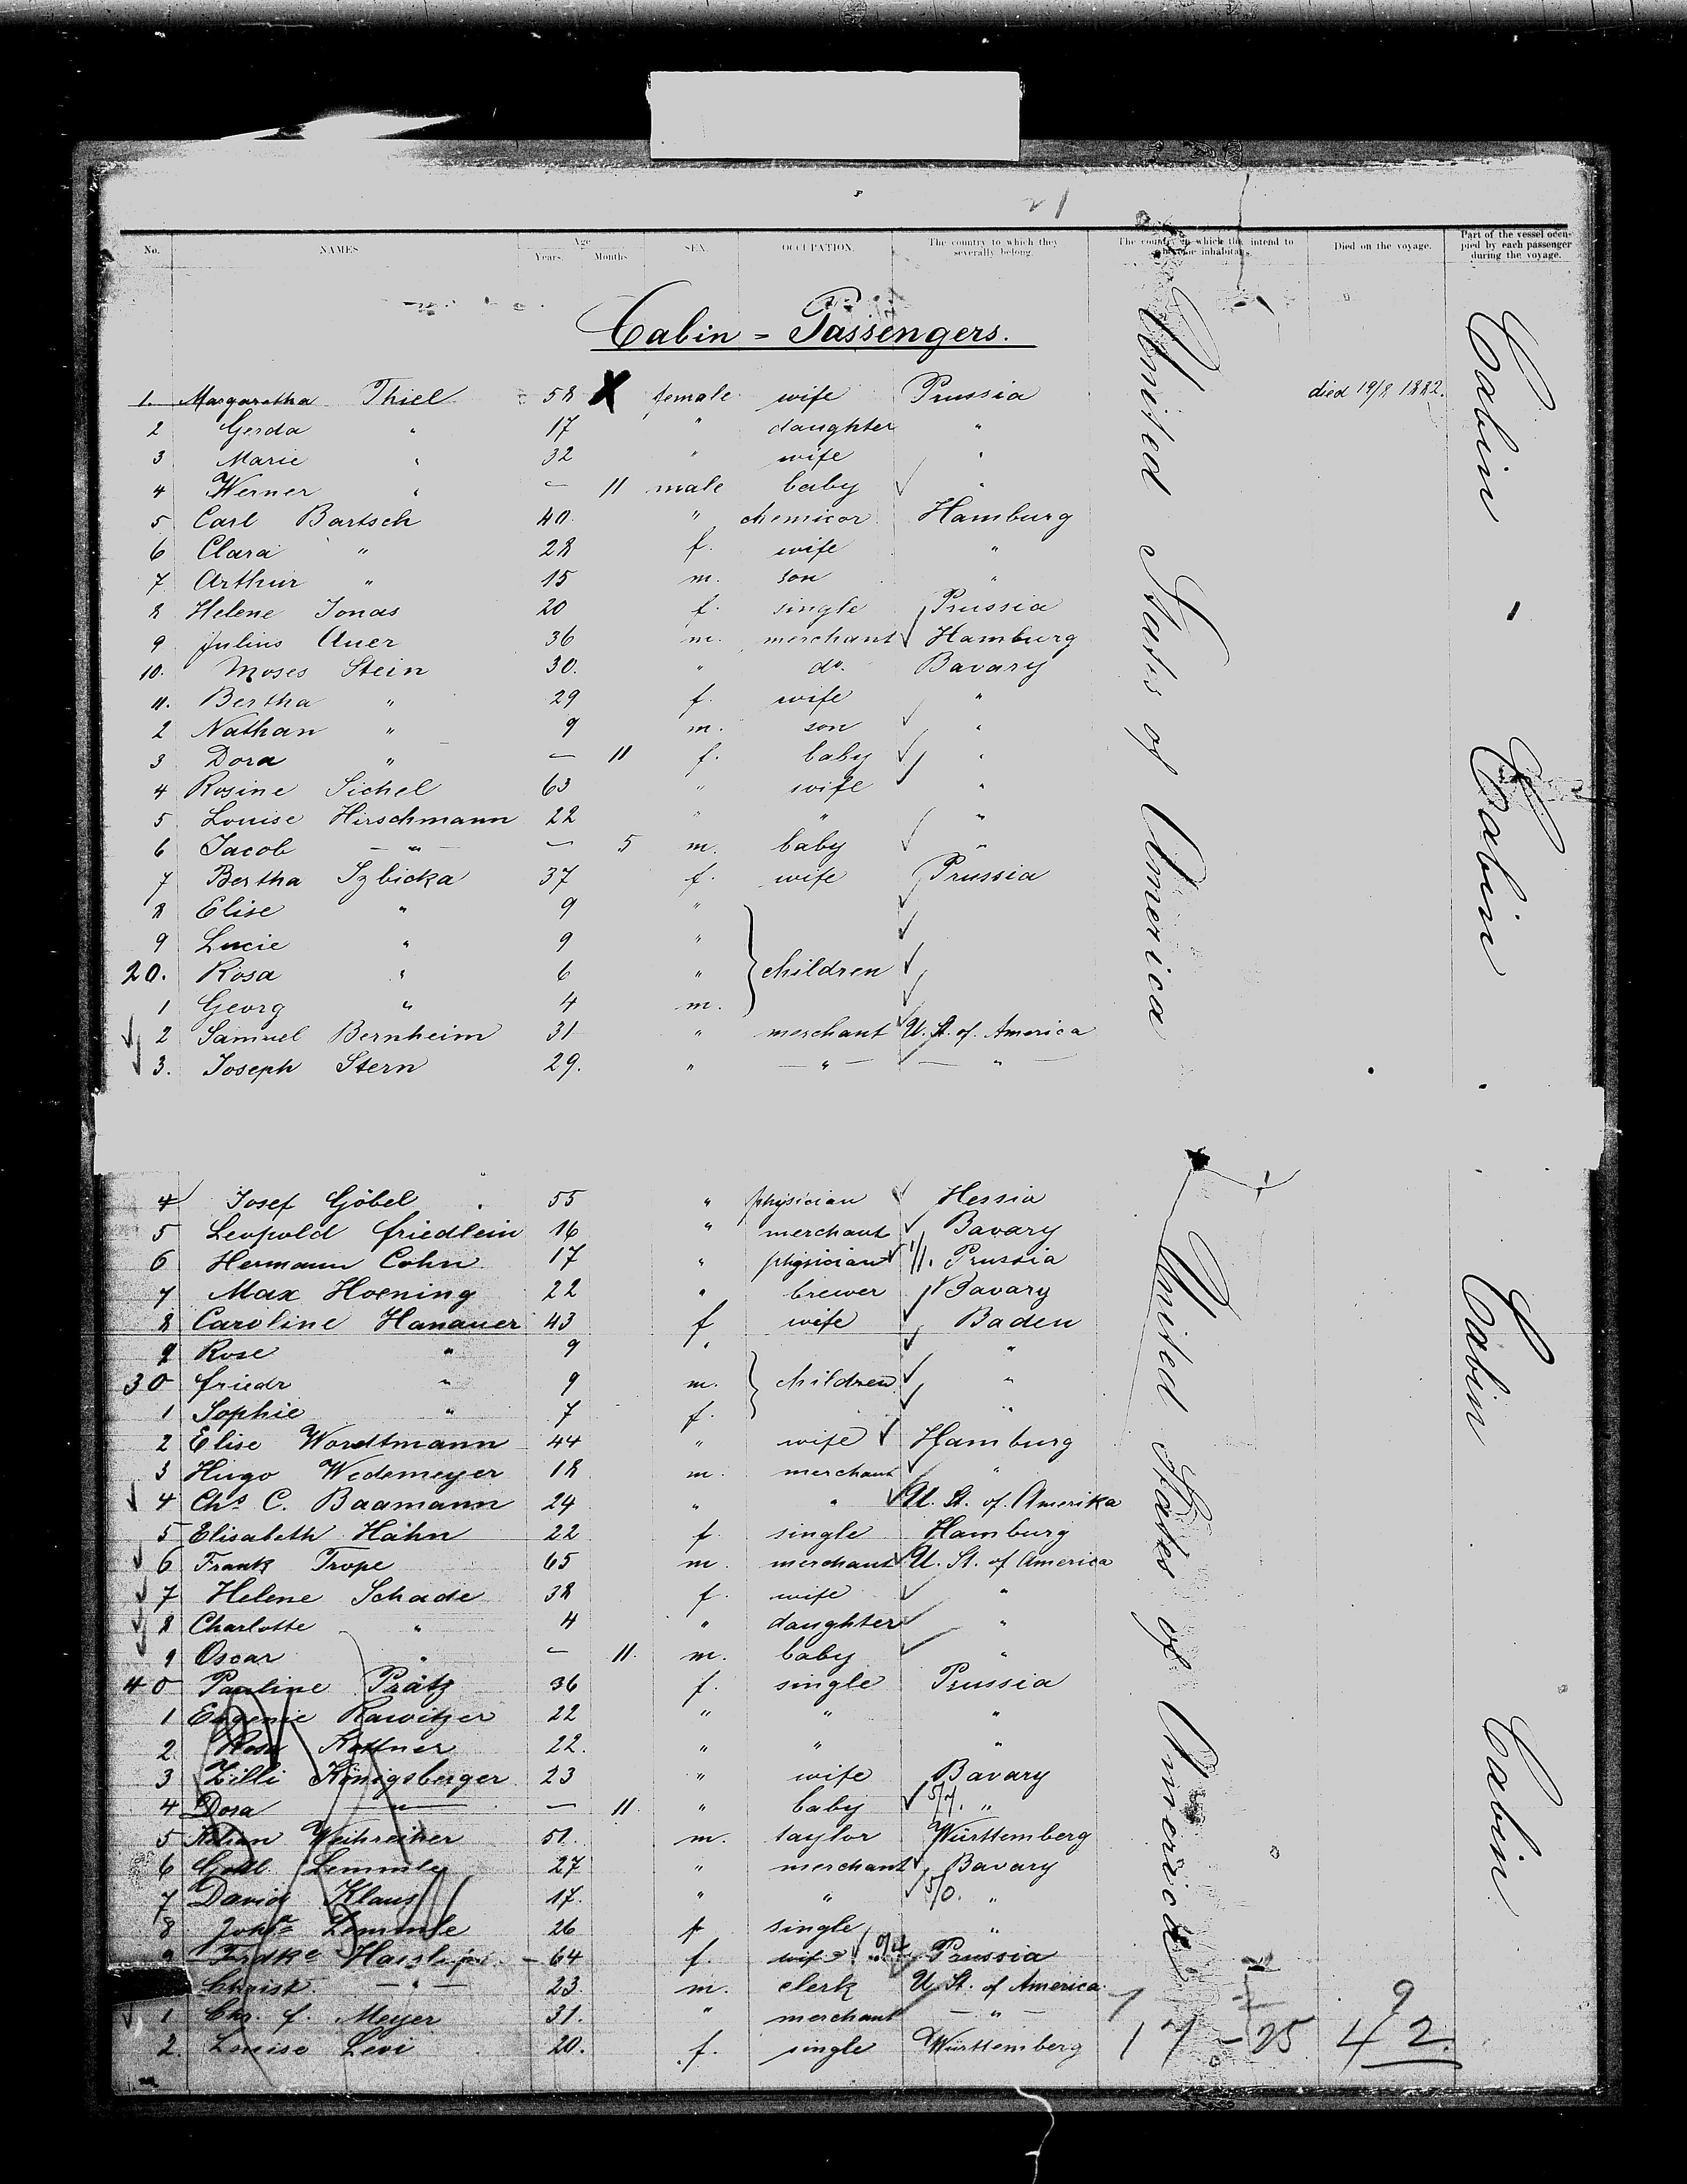 21
No. NAMES Age Years. Months SEX. OCCUPATION. The country to which they severally belong. The country in which they intend to become inhabitants. Died on the voyage. Part of the vessel occupied by each passenger during the voyage.
Cabin = Passengers.
1. Margaretha Thiel 58 X female wife Prussia died 19/8 1882.
2 Gerda " 17 " daughter "
3 Marie " 32 " wife "
4 Werner " — 11 male baby "
5 Carl Bartsch 40 " chemicor Hamburg
6 Clara " 28 f. wife "
7 Arthur " 15 m. son "
8 Helene Jonas 20 f. single Prussia
9 Julius Auer 36 m. merchant Hamburg
10. Moses Stein 30. " do. Bavary
11. Bertha " 29 f. wife "
2 Nathan " 9 m. son "
3 Dora " — 11 f. baby "
4 Rosine Sichel 63 " wife "
5 Louise Hirschmann 22 " " "
6 Jacob " — 5 m. baby "
7 Bertha Szbicka 37 f. wife Prussia
8 Elise " 9 "
9 Lucie " 9 "
20. Rosa " 6 " children
1 Georg " 4 m.
2 Samuel Bernheim 31 " merchant U. St. of America
3. Joseph Stern 29. " " "
4 Josef Göbel 55 " physician Hessia
5 Leopold Friedlein 16 " merchant Bavary
6 Hermann Cohn 17 " physician Prussia
7 Max Hoening 22 " brewer Bavary
8 Caroline Hanauer 43 f wife Baden
9 Rose " 9 " "
30 Friedr " 9 m. children "
1 Sophie " 7 f. "
2 Elise Wordtmann 44 " wife Hamburg
3 Hugo Wedemeyer 18 m. merchant "
4 Chs. C. Baamann 24 " " U. St. of Amerika
5 Elisabeth Hahn 22 f. single Hamburg
6 Frank Trope 65 m. merchant U. St. of America
7 Helene Schade 38 f. wife "
8 Charlotte " 4 " daughter "
9 Oscar " — 11. m. baby "
40 Pauline Prätz 36 f. single Prussia
1 Eugenie Rawitzer 22 " " "
2 Rosa Kottner 22. " " "
3 Zilli Königsberger 23 " wife Bavary
4 Dora " — 11. " baby "
5 Weihreiher 51. m. taylor Württemberg
6 Gottl. Lemmle 27 " merchant Bavary
7 David Klaus 17. " " "
8 Joha Lemmle 26 f single "
9 Frdke 64 f. wife Prussia
Christ. " 23. m. clerk U. St. of America
1 Chr. F. Meyer 31. " merchant "
2. Louise Levi 20. f. single Württemberg
17 25 9 42.
United States of America
United States of America
Cabin
Cabin
Cabin
Cabin